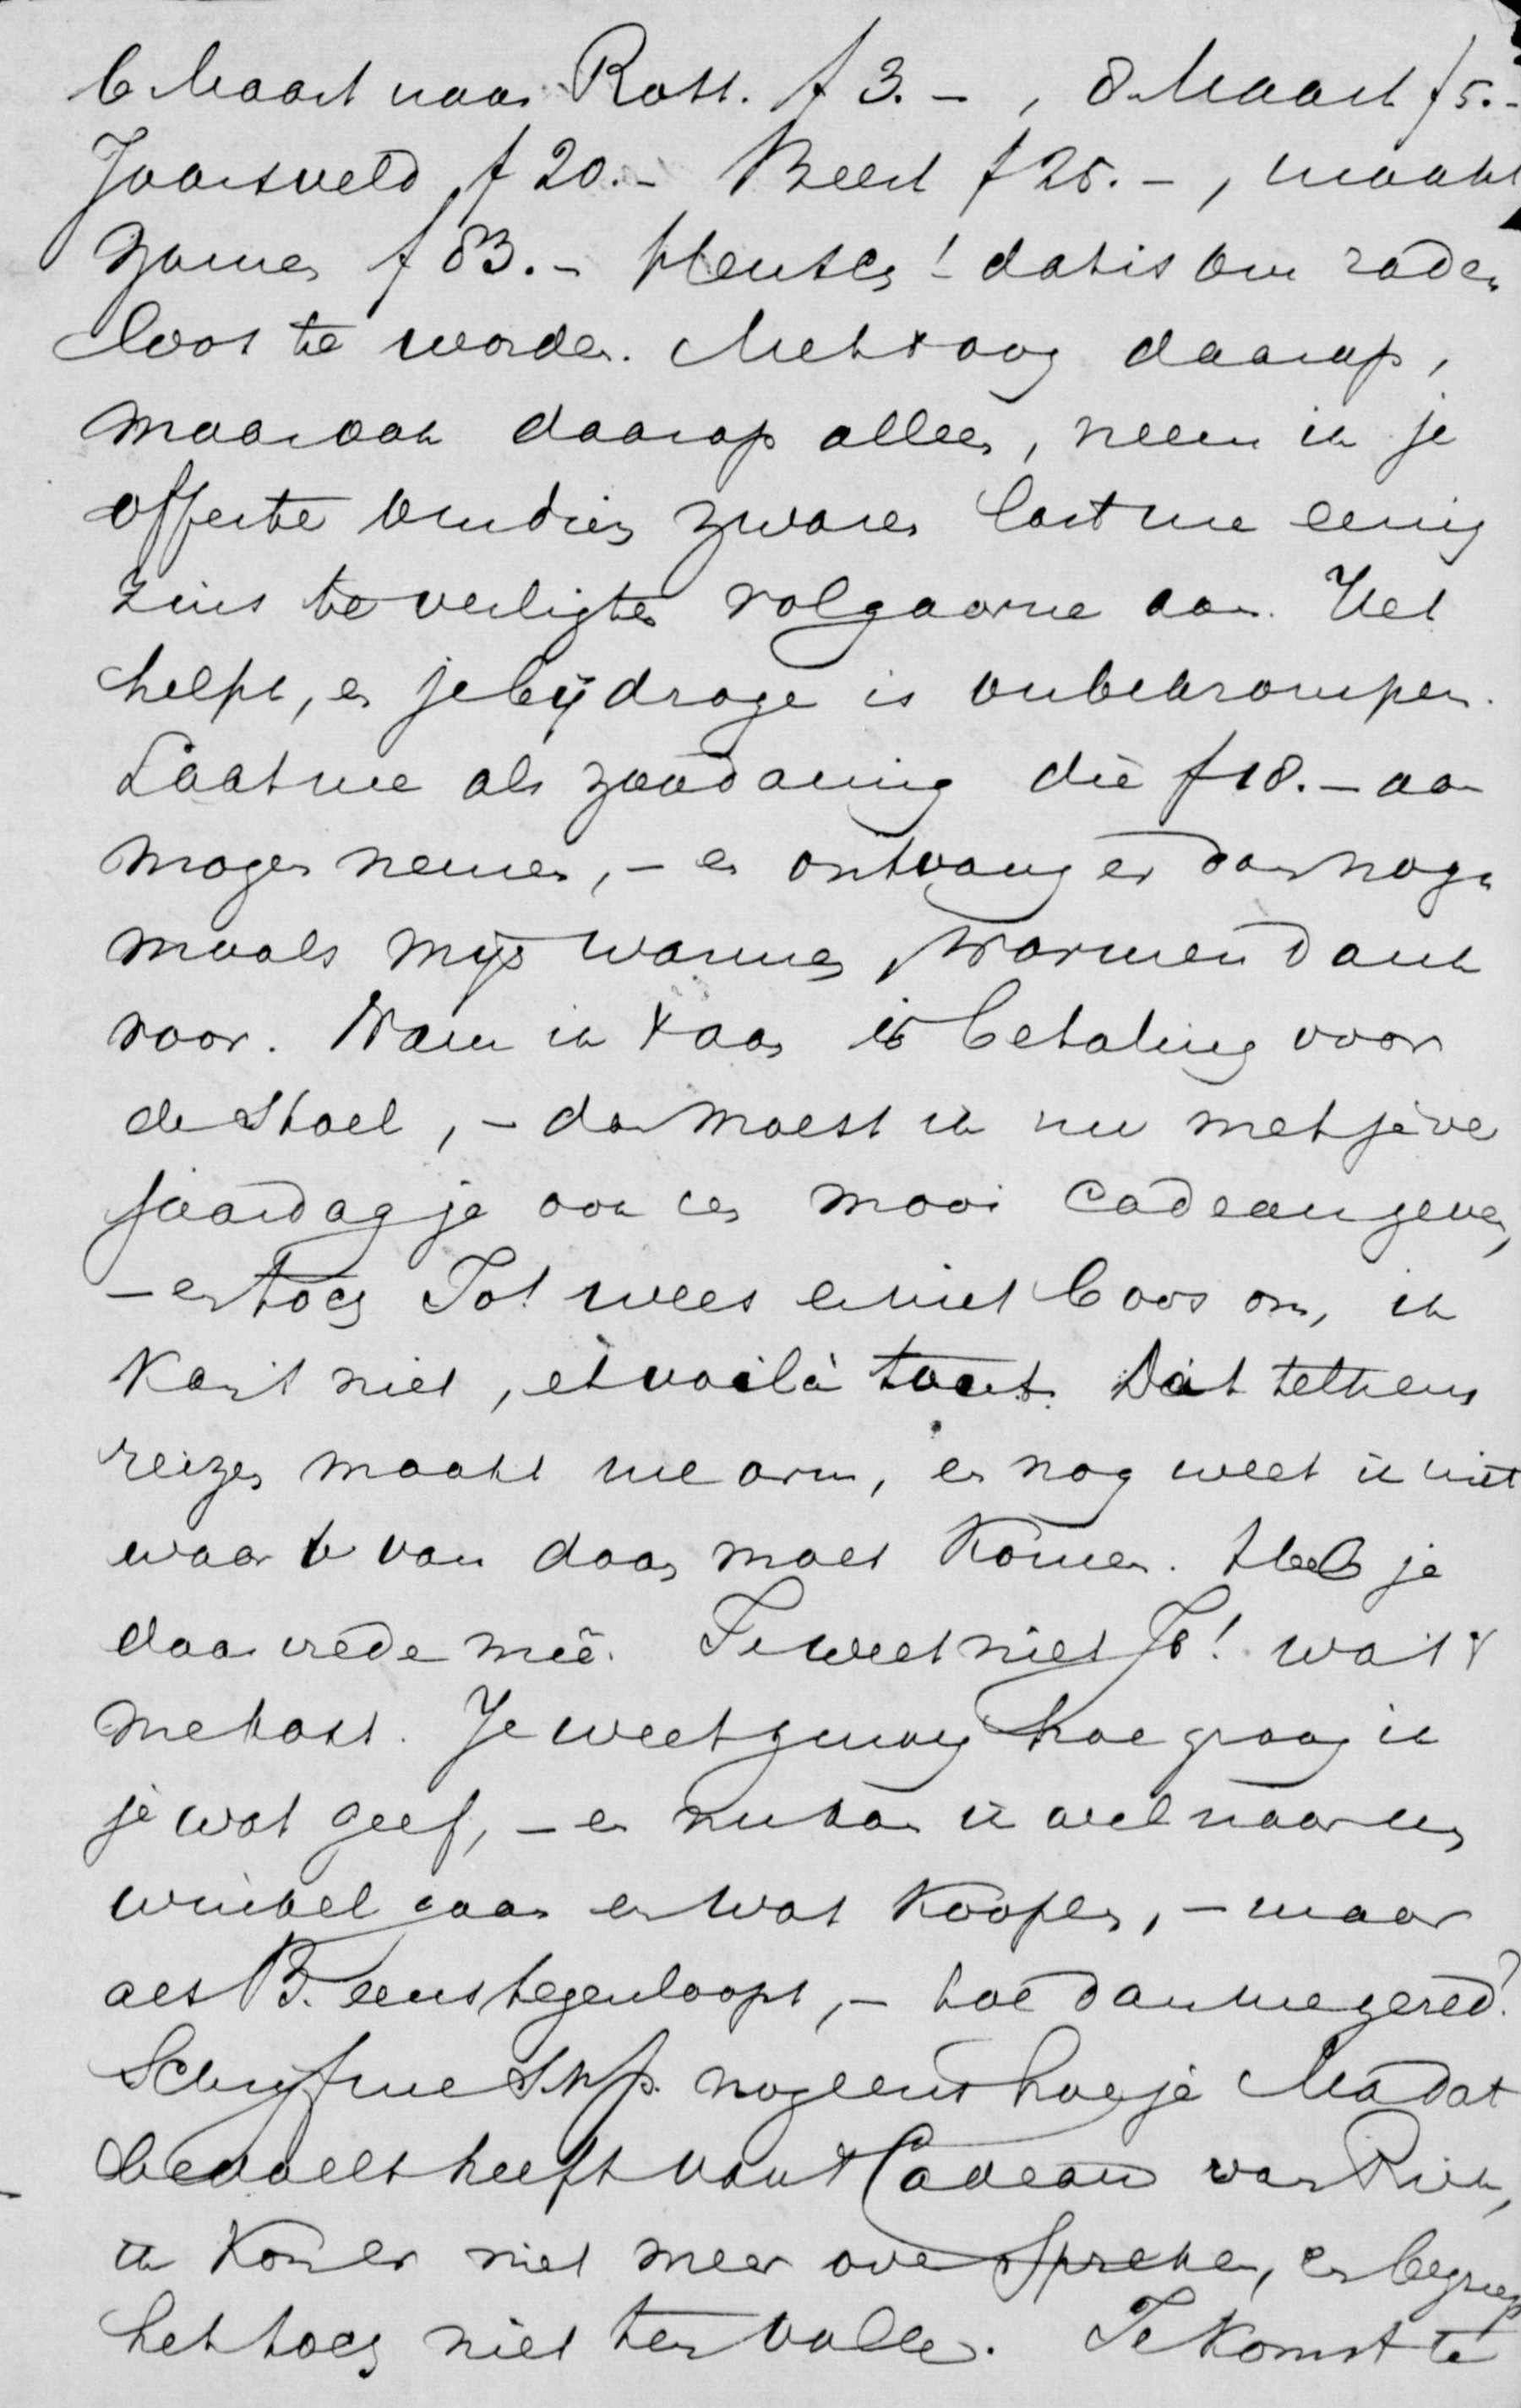 6 Maart naar Rott. f 3.-, 8 Maart f 5.-
Jaarsveld f 20.- Beert f 25.-, maakt
zamen f 83.- Heusch! dat is om rade
loos te worden. Met 't oog daarop,
maar ook daarop alleen, neem ik je
offerte om dien zwaren last me eenig
zins te verligten volgaarne aan. Het
helpt, en je bijdrage is onbekrompen.
Laat me als zoodanig die f 18.- aan
mogen nemen, - en ontvang er dan nog
maals mijn warmen, warmen dank
voor. Nam ik 't aan in betaling voor
de stoel, - dan moest ik nu met je ver
jaardag je ook een mooi cadeau geven,
- en toch Jo! wees er niet boos om, ik
kan 't niet, et voilà tout. Dat telkens
reizen maakt me arm, en nog weet ik niet
waar 't van daan moet komen. Heb je
daar vrede meê. Je weet niet Jo! wat 't
me kost. Je weet genoeg hoe graag ik
je wat geef, - en nu kan ik wel naar een
winkel gaan en wat koopen, - maar
als B. eens tegenloopt, - hoe dan me gered?
Schrijf me S.v.p. nog eens hoe je Ma dat
bedoelt heeft van 't Cadeau van Riek,
ik kon er niet meer over spreken, en begreep
het toch niet ten volle. Je komst te